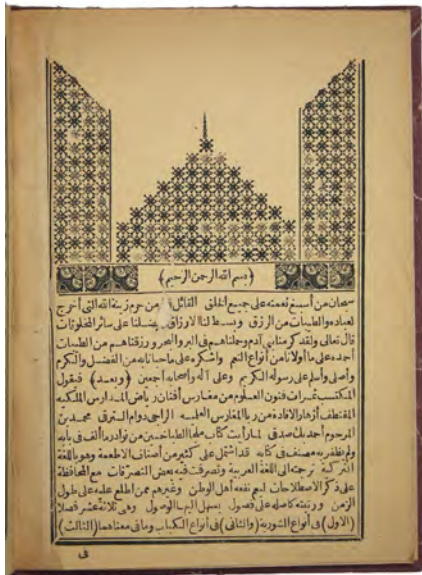 ﴿بسم الله الرحمن الرحيم﴾
سبحان من أسبغ نعمته على جميع الخلق القائل قل من حرم زينة الله التى أخرج
لعباده والطيبات من الرزق وبسط لنا الارزاق وفضلنا على سائر المخلوقات
قال تعالى ولقد كرمنا بنى آدم وحملناهم فى البر والبحر ورزقناهم من الطيبات
أحمده على ما أولانا من أنواع النعم وأشكره على ما حبانا به من الفضل والكرم
وأصلى وأسلم على رسوله الكريم وعلى آله وأصحابه أجمعين ﴿وبعد﴾ فيقول
المكتسب ثمرات فنون العلوم من مغارس أفنان رياض المدارس الملكيه
المقتطف أزهار الافادة من ربا المغارس العلميه الراجى دوام الترقى محمد بن
المرحوم أحمد بك صدقى لما رأيت كتاب ملجأ الطباخين من نوادر ما ألف فى بابه
ولم يظفر به مصنف فى كتابه قد اشتمل على كثير من أصناف الاطعمة وهو باللغة
التركية ترجمته الى اللغة العربية وتصرفت فيه بعض التصرفات مع المحافظة
على ذكر الاصطلاحات ليعم نفعه أهل الوطن وغيرهم ممن اطلع عليه على طول
الزمن ورتبته كاصله على فصول يسهل اليها الوصول وهى ثلاثة عشر فصلا
(الاول) فى أنواع الشوربة (والثانى) فى أنواع الكباب وما فى معناها (الثالث)
فى